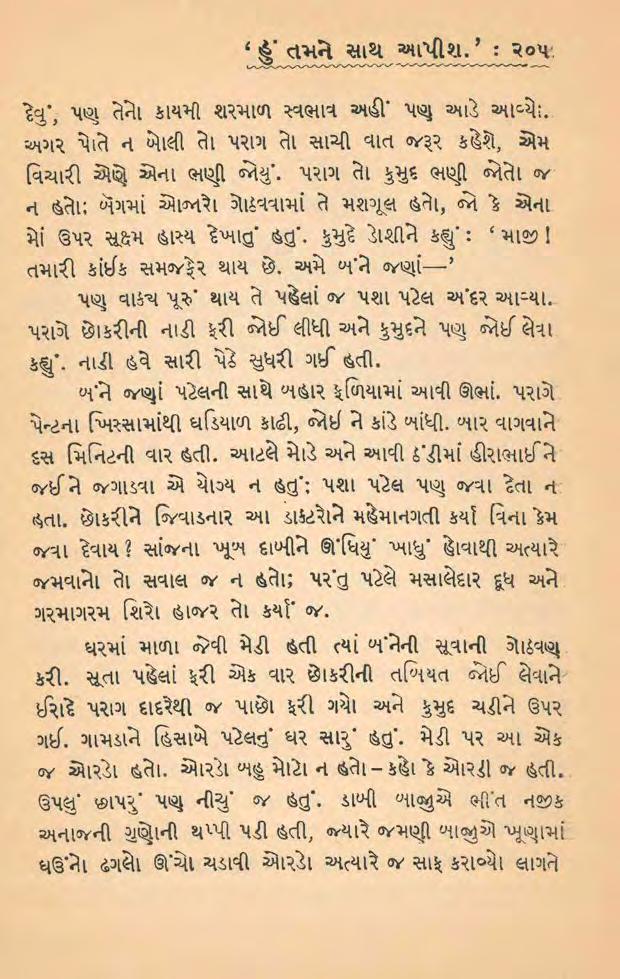 ‘ હું તમને સાથ આપીશ.’ : ૨૦૫
દેવું, પણ તેનો કાયમી શરમાળ સ્વભાવ અહીં પણ આડે આવ્યો.
અગર પોતે ન બોલી તો પરાગ તો સાચી વાત જરૂર કહેશે, એમ
વિચારી એણે એના ભણી જોયું. પરાગ તો કુમુદ ભણી જોતો જ
ન હતો; બૅગમાં ઓજારો ગોઠવવામાં તે મશગૂલ હતો, જો કે એના
મોં ઉપર સૂક્ષ્મ હાસ્ય દેખાતું હતું. કુમુદે ડોશીને કહ્યું : ‘ માજી !
તમારી કાંઈક સમજફેર થાય છે. અમે બંને જણાં—’
પણ વાક્ય પૂરું થાય તે પહેલાં જ પશા પટેલ અંદર આવ્યા.
પરાગે છોકરીની નાડી ફરી જોઈ લીધી અને કુમુદને પણ જોઈ લેવા
કહ્યું. નાડી હવે સારી પેઠે સુધરી ગઈ હતી.
બંને જણાં પટેલની સાથે બહાર ફળિયામાં આવી ઊભાં. પરાગે
પેન્ટના ખિસ્સામાંથી ઘડિયાળ કાઢી, જોઈ ને કાંડે બાંધી. બાર વાગવાને
દસ મિનિટની વાર હતી. આટલે મોડે અને આવી ઠંડીમાં હીરાભાઈને
જઈને જગાડવા એ યોગ્ય ન હતું; પશા પટેલ પણ જવા દેતા ન
હતા. છોકરીને જિવાડનાર આ ડાક્ટરોને મહેમાનગતી કર્યા વિના કેમ
જવા દેવાય ? સાંજના ખૂબ દાબીને ઊંધિયું ખાધું હોવાથી અત્યારે
જમવાનો તો સવાલ જ ન હતો; પરંતુ પટેલે મસાલેદાર દૂધ અને
ગરમાગરમ શિરો હાજર તો કર્યાં જ.
ઘરમાં માળા જેવી મેડી હતી ત્યાં બંનેની સૂવાની ગોઠવણ
કરી. સૂતા પહેલાં ફરી એક વાર છોકરીની તબિયત જોઈ લેવાને
ઈરાદે પરાગ દાદરેથી જ પાછો ફરી ગયો અને કુમુદ ચડીને ઉપર
ગઈ. ગામડાને હિસાબે પટેલનું ઘર સારું હતું. મેડી પર આ એક
જ ઓરડો હતો. ઓરડો બહુ મોટો ન હતો – કહો કે ઓરડી જ હતી.
ઉપલું છાપરું પણ નીચું જ હતું. ડાબી બાજુએ ભીંત નજીક
અનાજની ગુણોની થપ્પી પડી હતી, જ્યારે જમણી બાજુએ ખૂણામાં
ઘઉંનો ઢગલો ઊંચો ચડાવી ઓરડો અત્યારે જ સાફ કરાવ્યો લાગતે